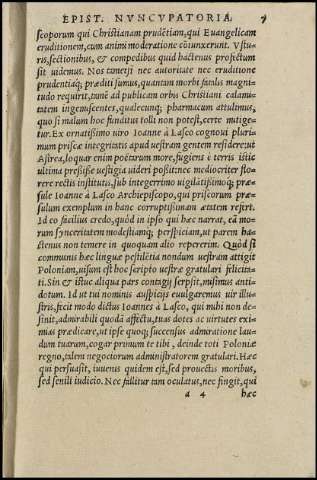 EPIST. NVNCVPATORIA. 7
scoporum qui Christianam prudẽtiam, qui Euangelicam
eruditionem, cum animi moderatione cõiunxerunt. Vstu-
ris, sectionibus, & compedibus quid hactenus profectum
sit uidemus. Nos tametsi nec autoritate nec eruditione
prudentiaq́; præditi sumus, quantum morbi fatalis magni-
tudo requirit, tamẽ ad publicam orbis Christiani calami-
tatem ingemiscentes, qualecunq; pharmacum attulimus,
quo si malum hoc funditus tolli non potest, certe mitige-
tur. Ex ornatißimo uiro Ioanne à Lasco cognoui pluri-
mum priscæ integritatis apud uestram gentem residere: ut
Astrea, loquar enim poëtarum more, fugiens è terris istic
ultima preßisse uestigia uideri poßit: nec mediocriter flo-
rere rectis institutis, sub integerrimo uigilãtißimoq́; præ-
sule Ioanne à Lasco Archiepiscopo, qui priscorum præ-
sulum exemplum in hanc corruptißimam ætatem refert.
Id eo facilius credo, quòd in ipso qui hæc narrat, eã mo-
rum synceritatem modestiamq; perspiciam, ut parem ha-
ctenus non temere in quoquam alio repererim. Quòd si
communis hæc linguæ pestilẽtia nondum uestram attigit
Poloniam, uisum est hoc scripto uestræ gratulari felicita-
ti. Sin & istuc aliqua pars contagij serpsit, misimus anti-
dotum. Id ut tui nominis auspicijs euulgaremus uir illu-
stris, fecit modo dictus Ioannes à Lasco, qui mihi non de-
sinit, admirabili quodã affectu, tuas dotes ac uirtutes exi-
mias prædicare, ut ipse quoq; succensus admiratione lau-
dum tuarum, cogar primum te tibi, deinde toti Poloniæ
regno, talem negotiorum administratorem gratulari. Hæc
qui persuasit, iuuenis quidem est, sed prouectis moribus,
sed senili iudicio. Nec fallitur tam oculatus, nec fingit, qui
a 4 hæc